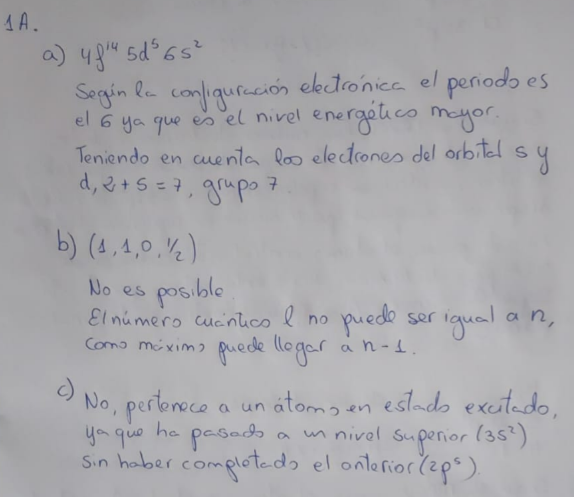 1A.
a) 4f¹⁴ 5d⁵ 6s²
Según la configuración electrónica el periodo es
el 6 ya que es el nivel energético mayor.
Teniendo en cuenta los electrones del orbital s y
d, 2 + 5 = 7, grupo 7.
b) (1, 1, 0, 1/2)
No es posible.
El número cuántico l no puede ser igual a n,
como máximo puede llegar a n-1.
c) No, pertenece a un átomo en estado excitado,
ya que ha pasado a un nivel superior (3s²)
sin haber completado el anterior (2p⁵).